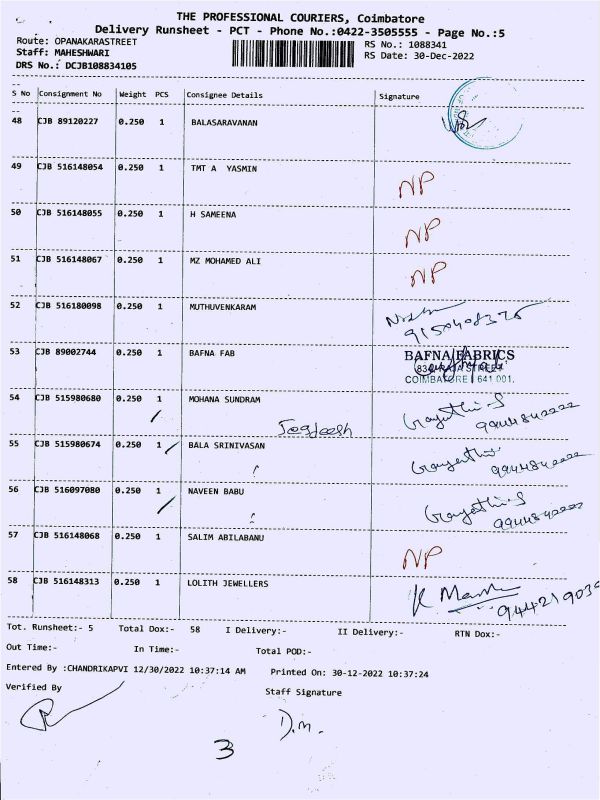 THE PROFESSIONAL COURIERS, Coimbatore
Delivery Runsheet - PCT - Phone No.:0422-3505555 - Page No.:5
Route: OPANAKARASTREET
RS No.: 1088341
Staff: MAHESHWARI
RS Date: 30-Dec-2022
DRS No.: DCJB108834105
S No Consignment No Weight PCS Consignee Details Signature
48 CJB 89120227 0.250 1 BALASARAVANAN
49 CJB 516148054 0.250 1 TMT A YASMIN NP
50 CJB 516148055 0.250 1 H SAMEENA NP
51 CJB 516148067 0.250 1 MZ MOHAMED ALI NP
52 CJB 516180098 0.250 1 MUTHUVENKARAM
53 CJB 89002744 0.250 1 BAFNA FAB BAFNA FABRICS
STREET
COIMBATORE 641 001.
54 CJB 515980680 0.250 1 MOHANA SUNDRAM Gayathri S
Jagdeesh 9944842222
55 CJB 515980674 0.250 1 BALA SRINIVASAN Gayathri
9944842222
56 CJB 516097080 0.250 1 NAVEEN BABU Gayathri S
9944842222
57 CJB 516148068 0.250 1 SALIM ABILABANU NP
58 CJB 516148313 0.250 1 LOLITH JEWELLERS
Tot. Runsheet:- 5 Total Dox:- 58 I Delivery:- II Delivery:- RTN Dox:-
Out Time:- In Time:- Total POD:-
Entered By :CHANDRIKAPVI 12/30/2022 10:37:14 AM Printed On: 30-12-2022 10:37:24
Verified By Staff Signature
D.M.
3